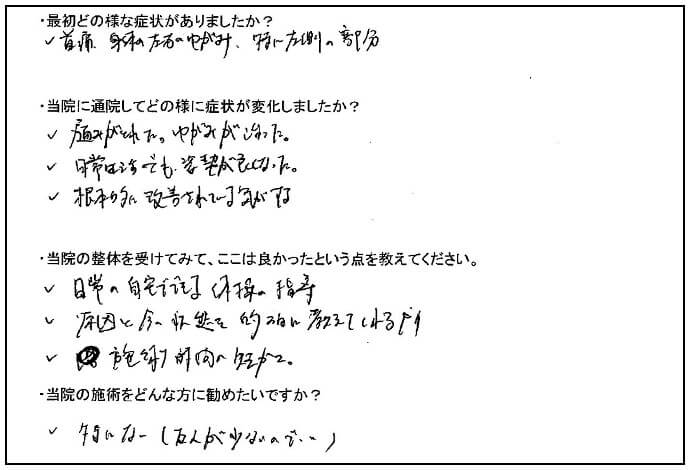 ・最初どの様な症状がありましたか？
✓ 首痛、身体の左右のゆがみ、特に左側の部分
・当院に通院してどの様に症状が変化しましたか？
✓ 痛みがとれた。ゆがみが治った。
✓ 日常生活でも、姿勢が良くなった。
✓ 根本的に改善されている気がする
・当院の整体を受けてみて、ここは良かったという点を教えてください。
✓ 日常の自宅でできる体操の指導
✓ 原因と今の状態を的確に教えてくれる所
✓ 施術時間の短かさ。
・当院の施術をどんな方に勧めたいですか？
✓ 特になし（友人が少ないので…）